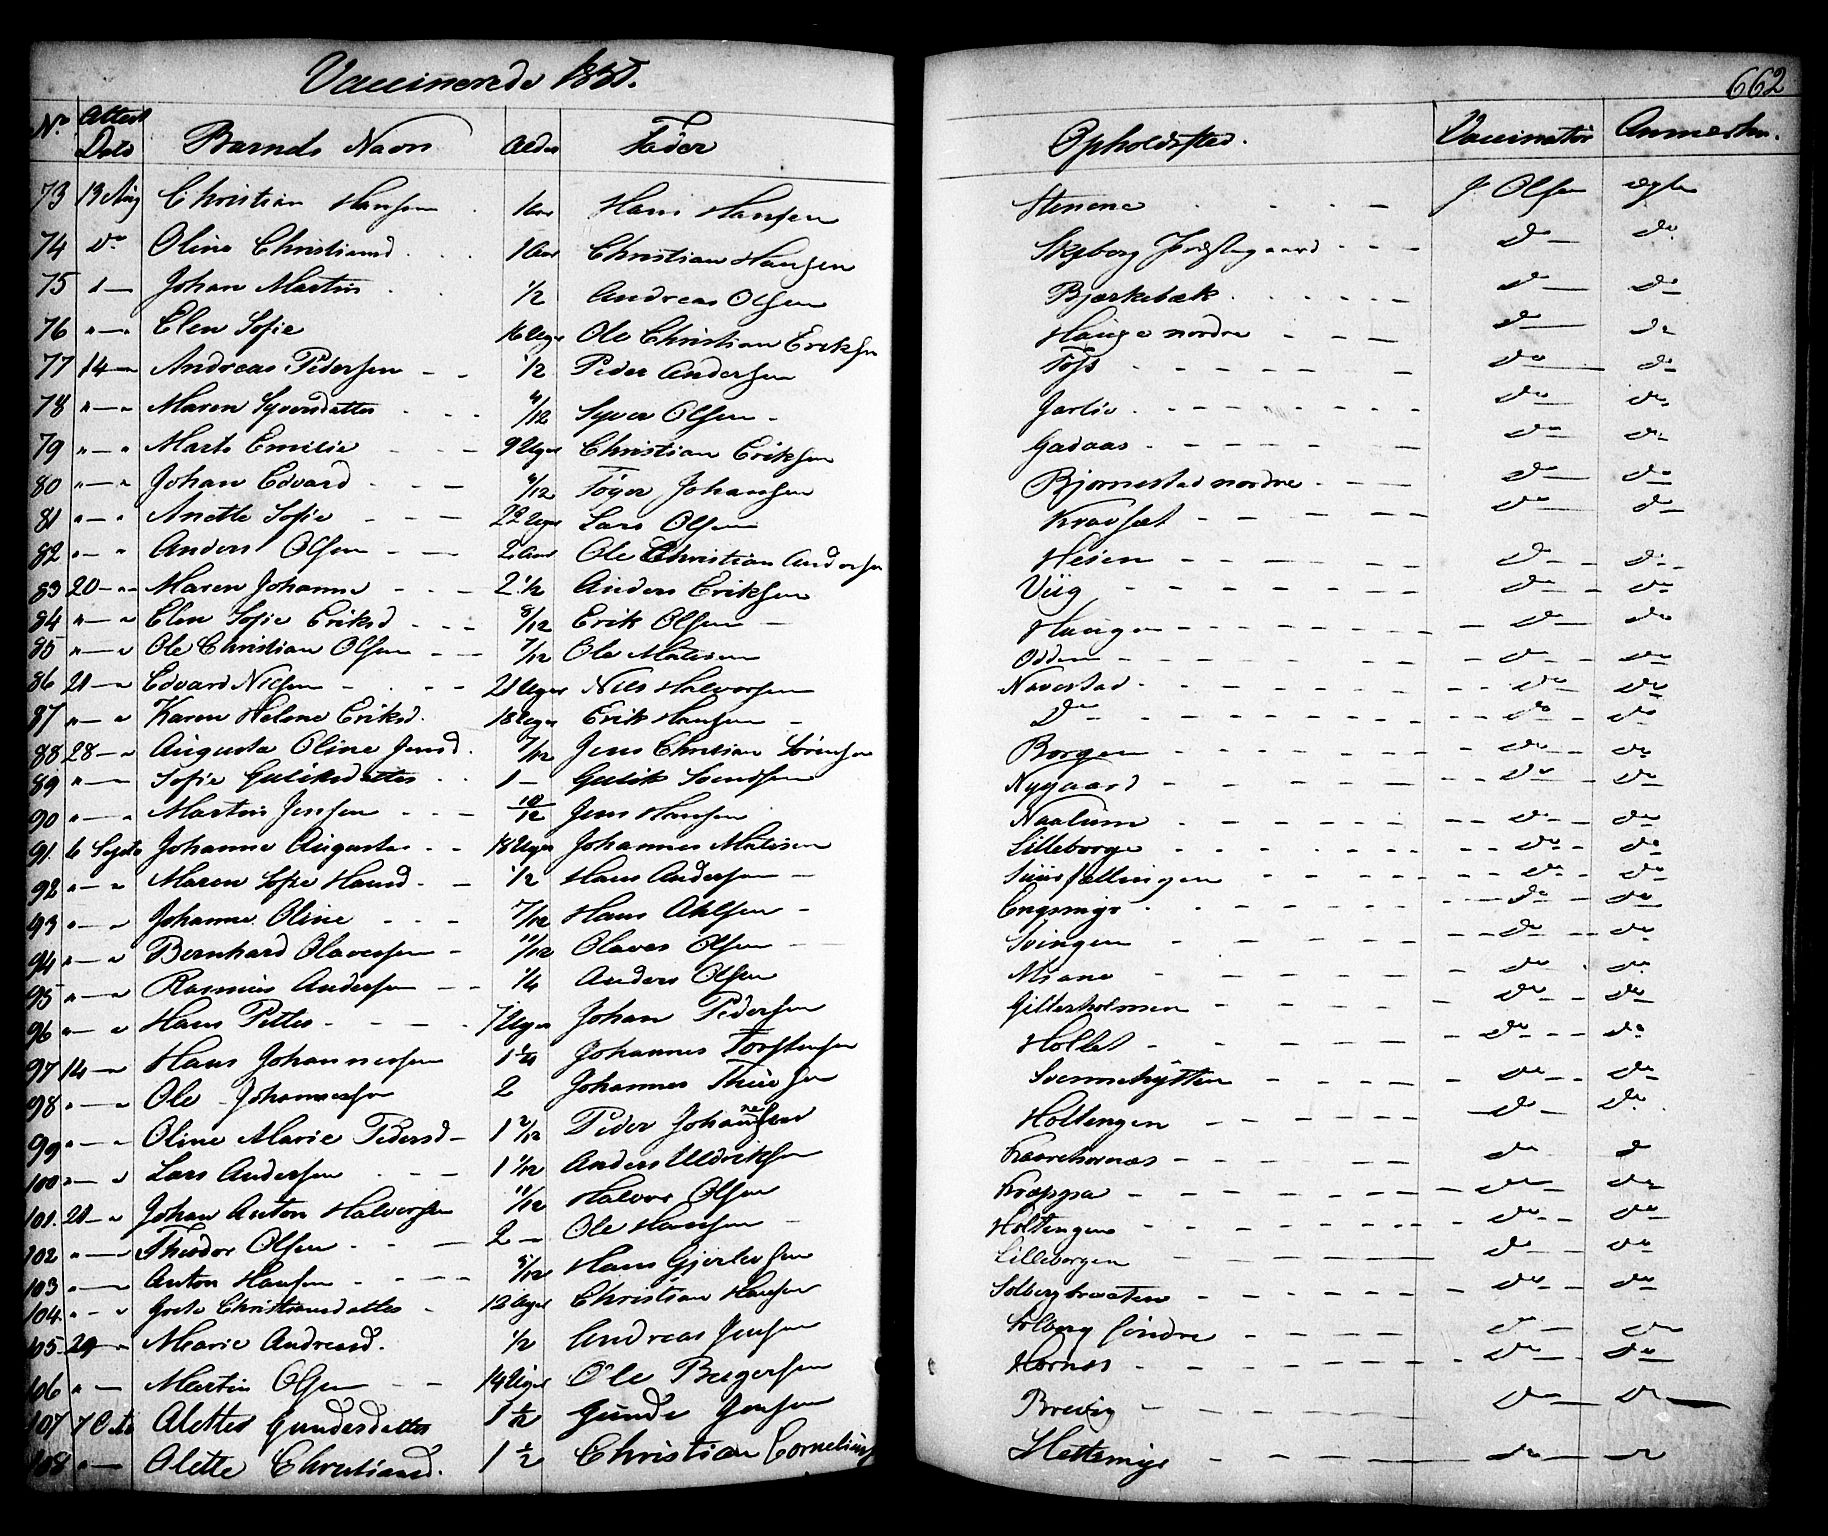 Vaccinerede
662
No Attest Dato Barnets Navn Alder Fader Opholdssted. Vaccinatør Anmærkn.
73 13 Aug Christian Hansen 1 Aar Hans Hansen Stenene J Olsen ægte
74 do Oline Christiansd 1 Aar Christian Hansen Skjeberg Præstegaard do do
75 Johan Martin 1/2 Andreas Olsen Bjærkebæk do do
76 " — " Elen Sofie 16 Uger Ole Christian Eriksen Hauge nordre do do
77 14 — Andreas Pedersen 1/2 Peder Andersen do do
78 " — " Maren Syversdatter /12 Syver Olsen do do
79 " — " Emilie 9 Uger Christian Eriksen Gadaas do do
80 " — " Johan Edvard /12 Johansen Bjørnestad nordre do do
81 " — " Anette Sofie 22 Uger Lars Olsen do do
82 " — " Anders Olsen 2 Aar Ole Christian Andersen do do
83 20 — " Maren Johanne 2 1/2 Anders Eriksen Viig do do
84 " — " Elen Sofie Eriksd 8/12 Erik Olsen Haugen do do
85 " — " Ole Christian Olsen 7/12 Ole Matisen Odden do do
86 21 — " Edvard Nilsen 21 Uger Nils Halvorsen Navestad do do
87 " — " Karen Helene Eriksd. 18 Uger Erik Hansen Do do do
88 28 — " Augusta Oline Jensd. 7/12 Jens Christian Sørensen Borgen do do
89 " — " Sofie Guliksdatter 1 — Gulik Svendsen Nygaard do do
90 " — " Martin Jensen 10/12 Jens Hansen Naalum do do
91. 6 Septb Johanne Augusta 18 Uger Johannes Matisen Lilleborge do do
92 " — " Maren Sofie Hansd. 1/2 Hans Andersen do do
93 " — " Johanne Oline 7/12 Hans Ahlsen Engsmyr do do
94 " — " Bernhard Olavessen 11/12 Olaves Olsen Svingen do do
95 " — " Rasmus Andersen 1/4 Anders Olsen do do
96 " — " Hans Petter 7 Uger Johan Pedersen Gilterholmen do do
97 14 — " Hans Johannessen 1 Johannes Torstensen do do
98 " — " Ole Johannessen 2 Johannes Svennehytten do do
99 " — " Oline Marie Pedersd 1 2/12 Peder Johannesen Holtengen do do
100 " — " Lars Andersen 1 1/12 Anders Uldriksen do do
101. 21 — " Johan Anton Halvorsen 11/12 Halvor Olsen do do
102 " — Theodor Olsen 2 — Ole Hansen Holtengen do do
103 " — Anton Hansen /12 Hans Gjertsen Lilleborgen do do
104. " — " Christiansdatter 12 Uger Christian Hansen Solbergbraaten do do
105. 29 — " Marie Andreasd. 1/2 Andreas Jensen Solberg søndre do do
106 " — Martin Olsen 14 Uger Ole Hornes do do
107 7 Octb Gundersdatter 1 Gunde Jensen Brevig do do
108 " — Olette Christiansd. 1 1/2 Christian Cornelius Hettemyr do do